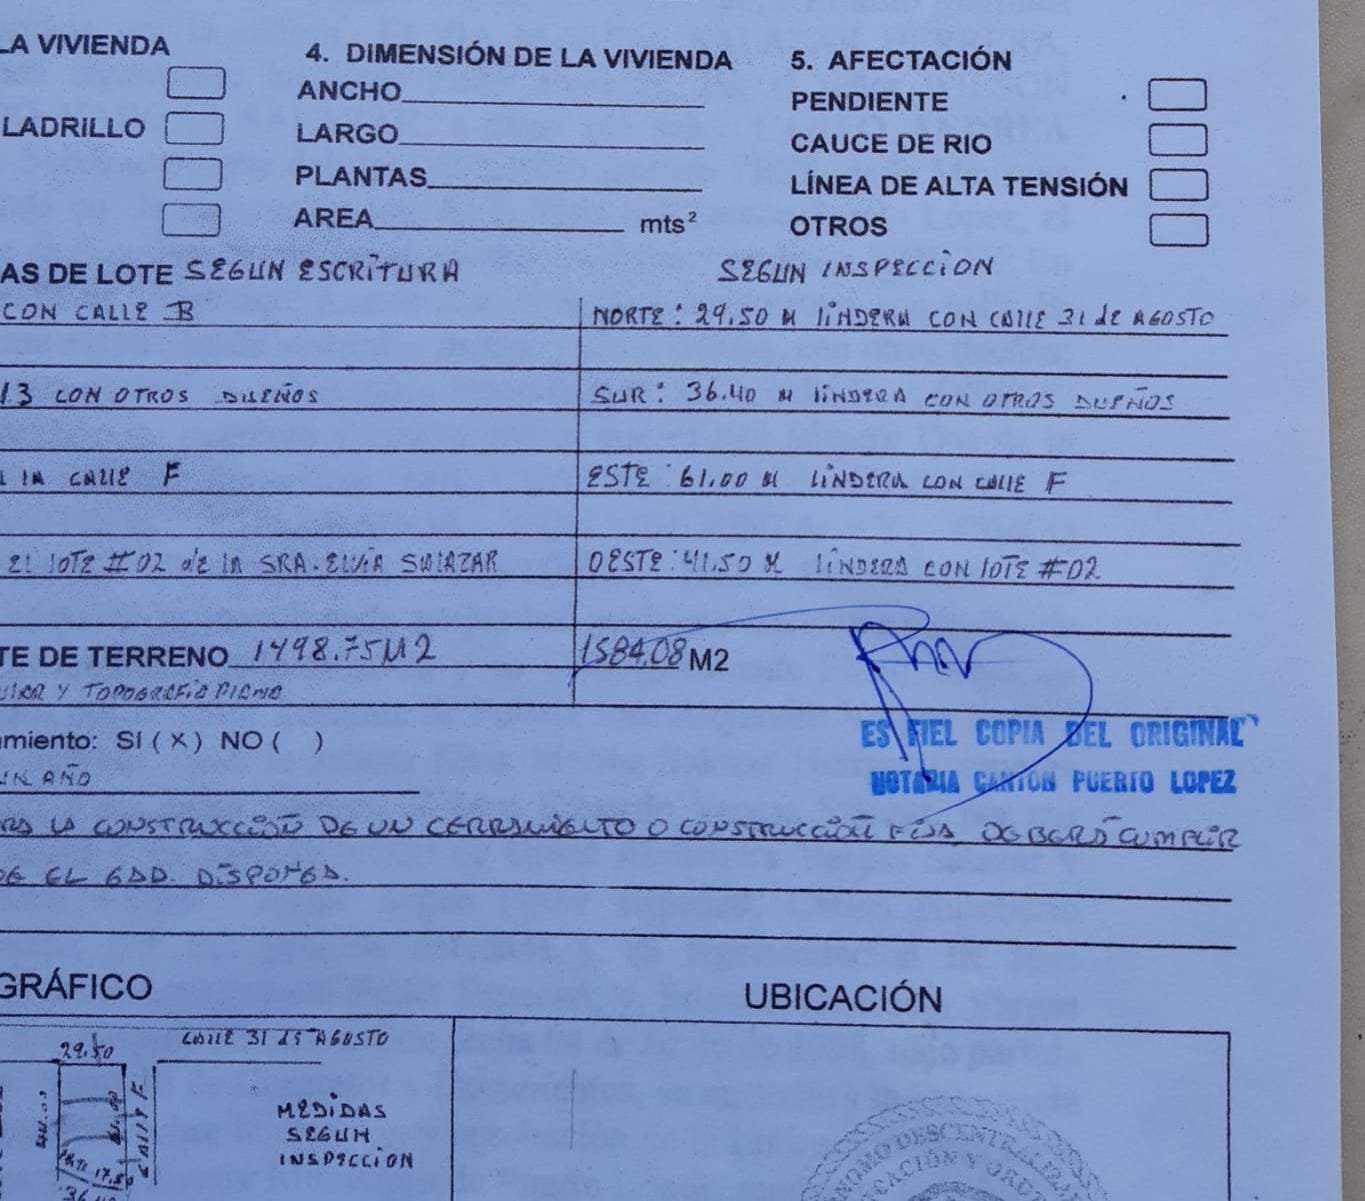 LA VIVIENDA
LADRILLO
4. DIMENSIÓN DE LA VIVIENDA
ANCHO
LARGO
PLANTAS
AREA mts²
5. AFECTACIÓN
PENDIENTE
CAUCE DE RIO
LÍNEA DE ALTA TENSIÓN
OTROS
AS DE LOTE SEGUN ESCRITURA SEGUN INSPECCION
CON CALLE B NORTE: 29.50 M LINDERA CON CALLE 31 de AGOSTO
13 CON OTROS DUEÑOS SUR: 36.40 M LINDERA CON OTROS DUEÑOS
LA CALLE F ESTE: 61.00 M LINDERA CON CALLE F
EL LOTE #02 de LA SRA. ELVIA SALAZAR OESTE: 41.50 M LINDERA CON LOTE #02
TE DE TERRENO 1498.75M2 1584.08 M2
Y TOPOGRAFIA PLANA
miento: SI ( X ) NO ( )
UN AÑO
ES FIEL COPIA DEL ORIGINAL
NOTARIA CANTON PUERTO LOPEZ
LA CONSTRUCCIÓN DE UN CERRAMIENTO O CONSTRUCCIÓN FISA DEBERÁ CUMPLIR
EL GAD. DISPONGA.
GRÁFICO
UBICACIÓN
CALLE 31 DE AGOSTO
29.50
MEDIDAS
SEGUN
INSPECCION
CALLE F
17.50